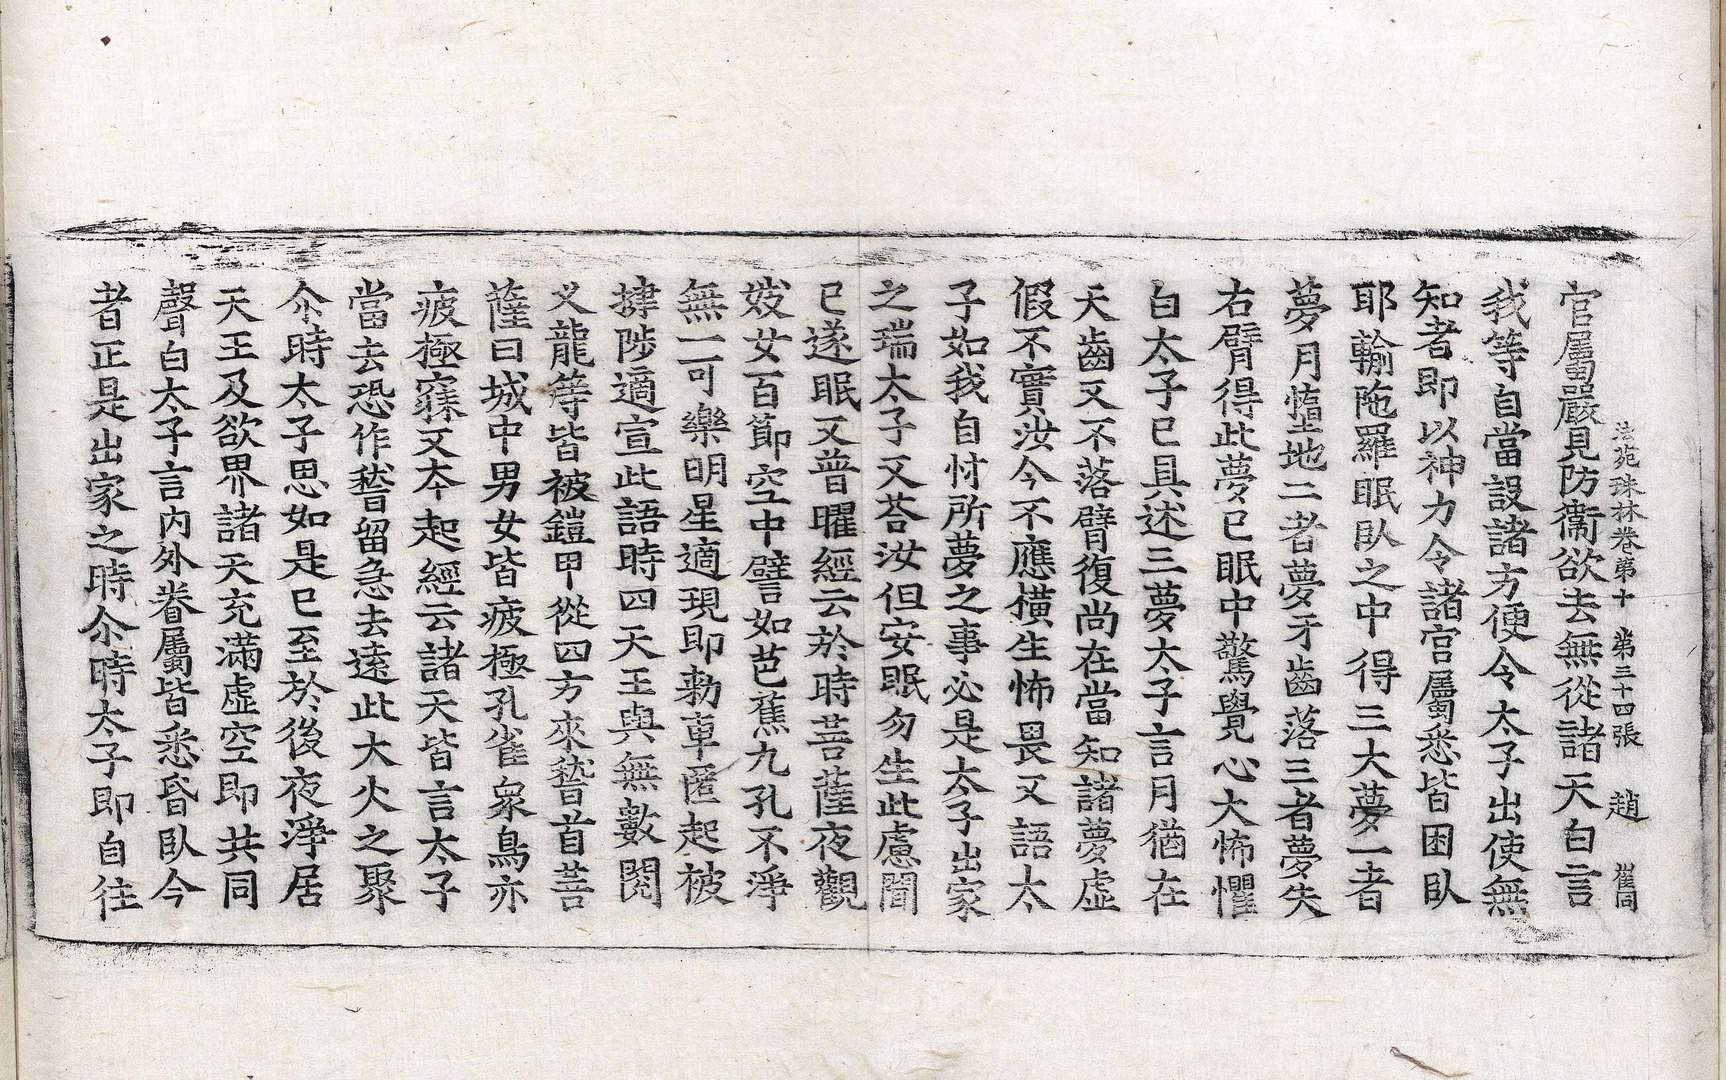 法苑珠林卷第十 第三十四張 趙 崔同
官屬嚴見防衞欲去無從諸天白言
我等自當設諸方便令太子出使無
知者即以神力令諸官屬悉皆困臥
耶輸陁羅眠臥之中得三大夢一者
夢月墮地二者夢牙齒落三者夢失
右臂得此夢已眠中驚覺心大怖懼
白太子已具述三夢太子言月猶在
天齒又不落臂復尚在當知諸夢虛
假不實汝今不應橫生怖畏又語太
子如我自忖所夢之事必是太子出家
之瑞太子又荅汝但安眠勿生此慮聞
已遂眠又普曜經云於時菩薩夜觀
妓女百節空中譬如芭蕉九孔不淨
無一可樂明星適現即勑車匿起被
揵陟適宣此語時四天王與無數閱
叉龍等皆被鎧甲從四方來䭫首菩
薩曰城中男女皆疲極孔雀衆鳥亦
疲極寐又夲起經云諸天皆言太子
當去恐作𥡴留急去遠此大火之聚
尒時太子思如是已至於後夜淨居
天王及欲界諸天充滿虛空即共同
聲白太子言內外眷屬皆悉昏臥今
者正是出家之時尒時太子即自往